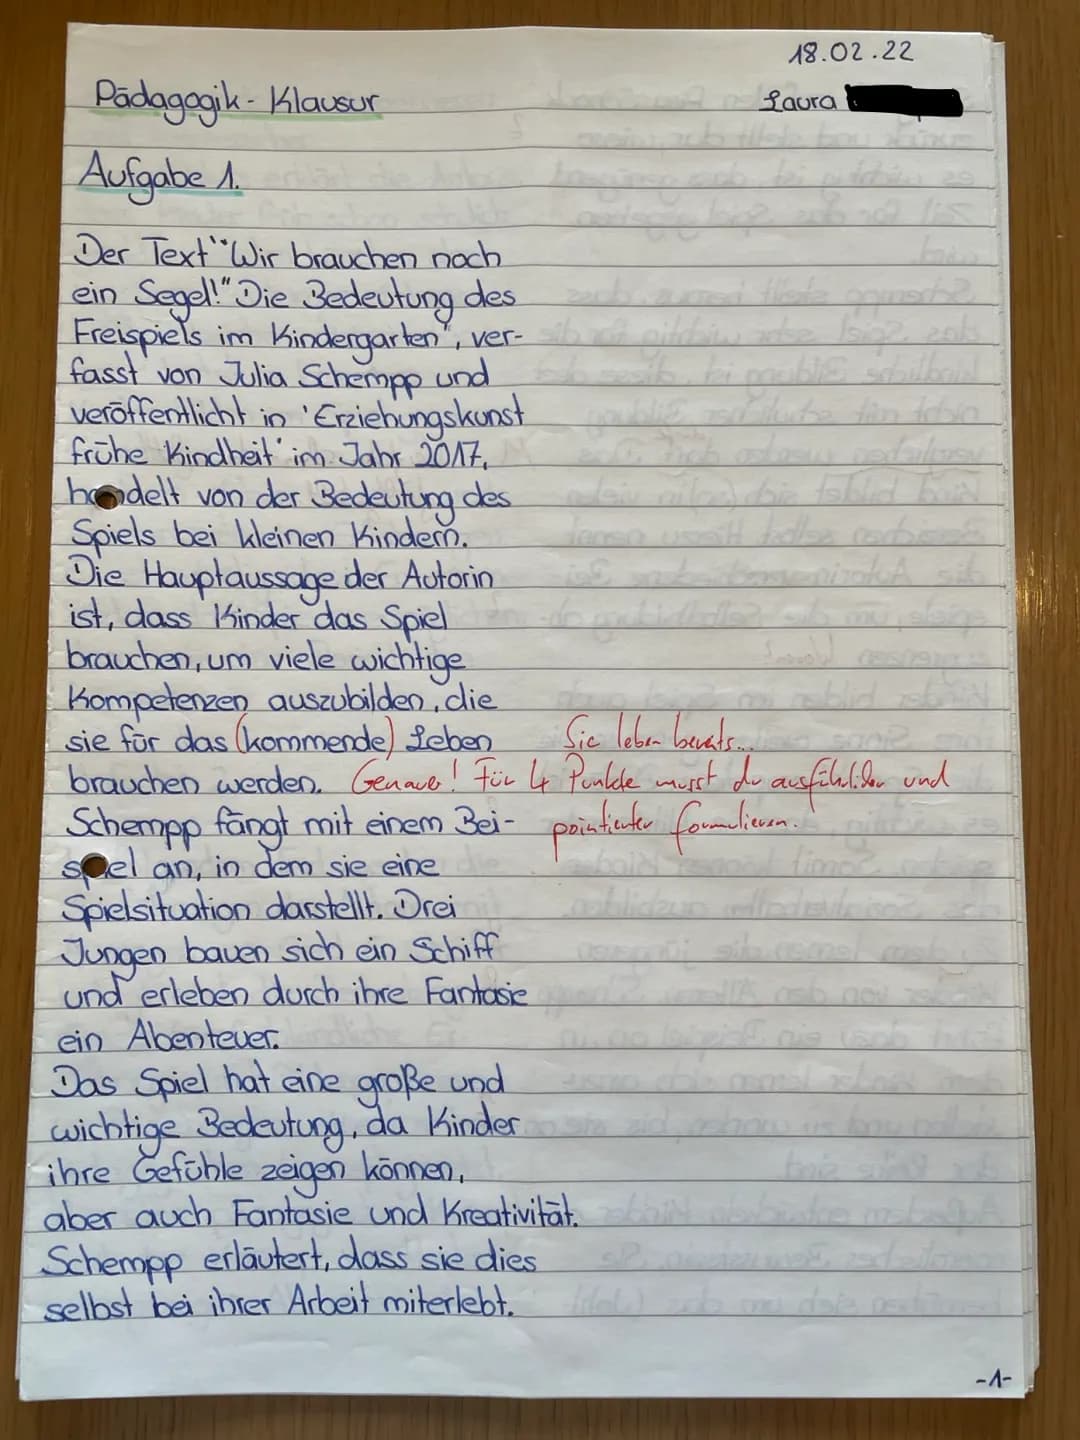 18.02.22
Pädagogik-Klausur
Laura
Aufgabe 1.
Der Text "'Wir brauchen noch
ein Segel!" Die Bedeutung des
Freispiels im Kindergarten", ver-
fasst von Julia Schempp und
veröffentlicht in 'Erziehungskunst
frühe Kindheit' im Jahr 2017,
handelt von der Bedeutung des
Spiels bei kleinen Kindern.
Die Hauptaussage der Autorin
ist, dass Kinder das Spiel
brauchen, um viele wichtige
Kompetenzen auszubilden, die
sie für das (kommende) Leben Sie leben bereits...
brauchen werden. Genauer! Für 4 Punkte musst du ausführlicher und
Schempp fängt mit einem Bei- pointierter formulieren.
spiel an, in dem sie eine
Spielsituation darstellt. Drei
Jungen bauen sich ein Schiff
und erleben durch ihre Fantasie
ein Abenteuer.
Das Spiel hat eine große und
wichtige Bedeutung, da Kinder
ihre Gefühle zeigen können,
aber auch Fantasie und Kreativität.
Schempp erläutert, dass sie dies
selbst bei ihrer Arbeit miterlebt.
-1-